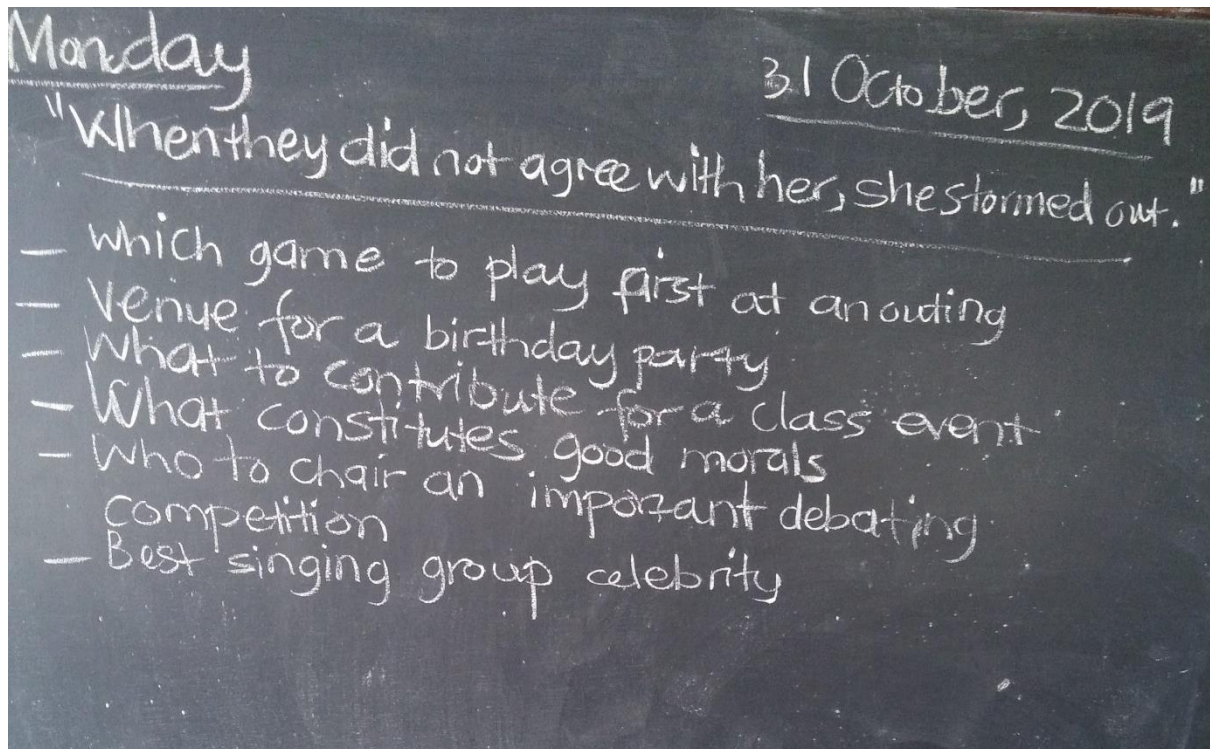 Monday
31 October, 2019
"When they did not agree with her, she stormed out."
- which game to play first at an outing
- Venue for a birthday party
- What to contribute for a class event
- What constitutes good morals
- Who to chair an important debating
competition
- Best singing group celebrity